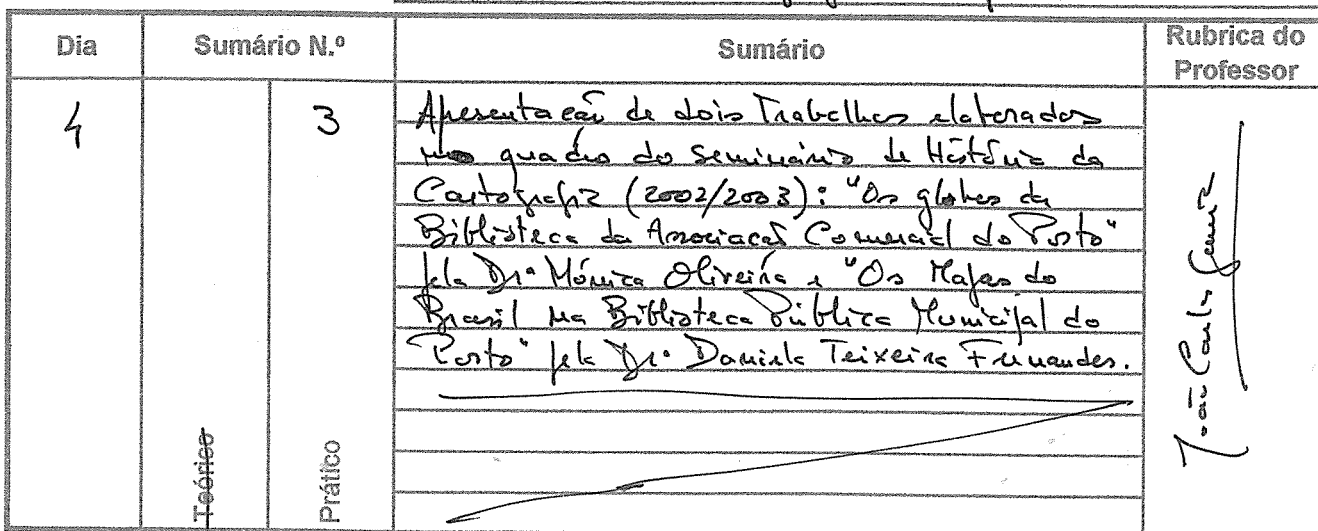 Dia Sumário N.º Sumário Rubrica do Professor
4 3
Apresentação de dois Trabalhos elaborados
no quadro do Seminário de História da
Cartografia (2002/2003): "Os globos da
Biblioteca da Associação Comercial do Porto"
pela Drª Mónica Oliveira e "Os Mapas do
Brasil na Biblioteca Pública Municipal do
Porto" pela Drª Daniela Teixeira Fernandes.
Teórico Prático
João Carlos Garcia